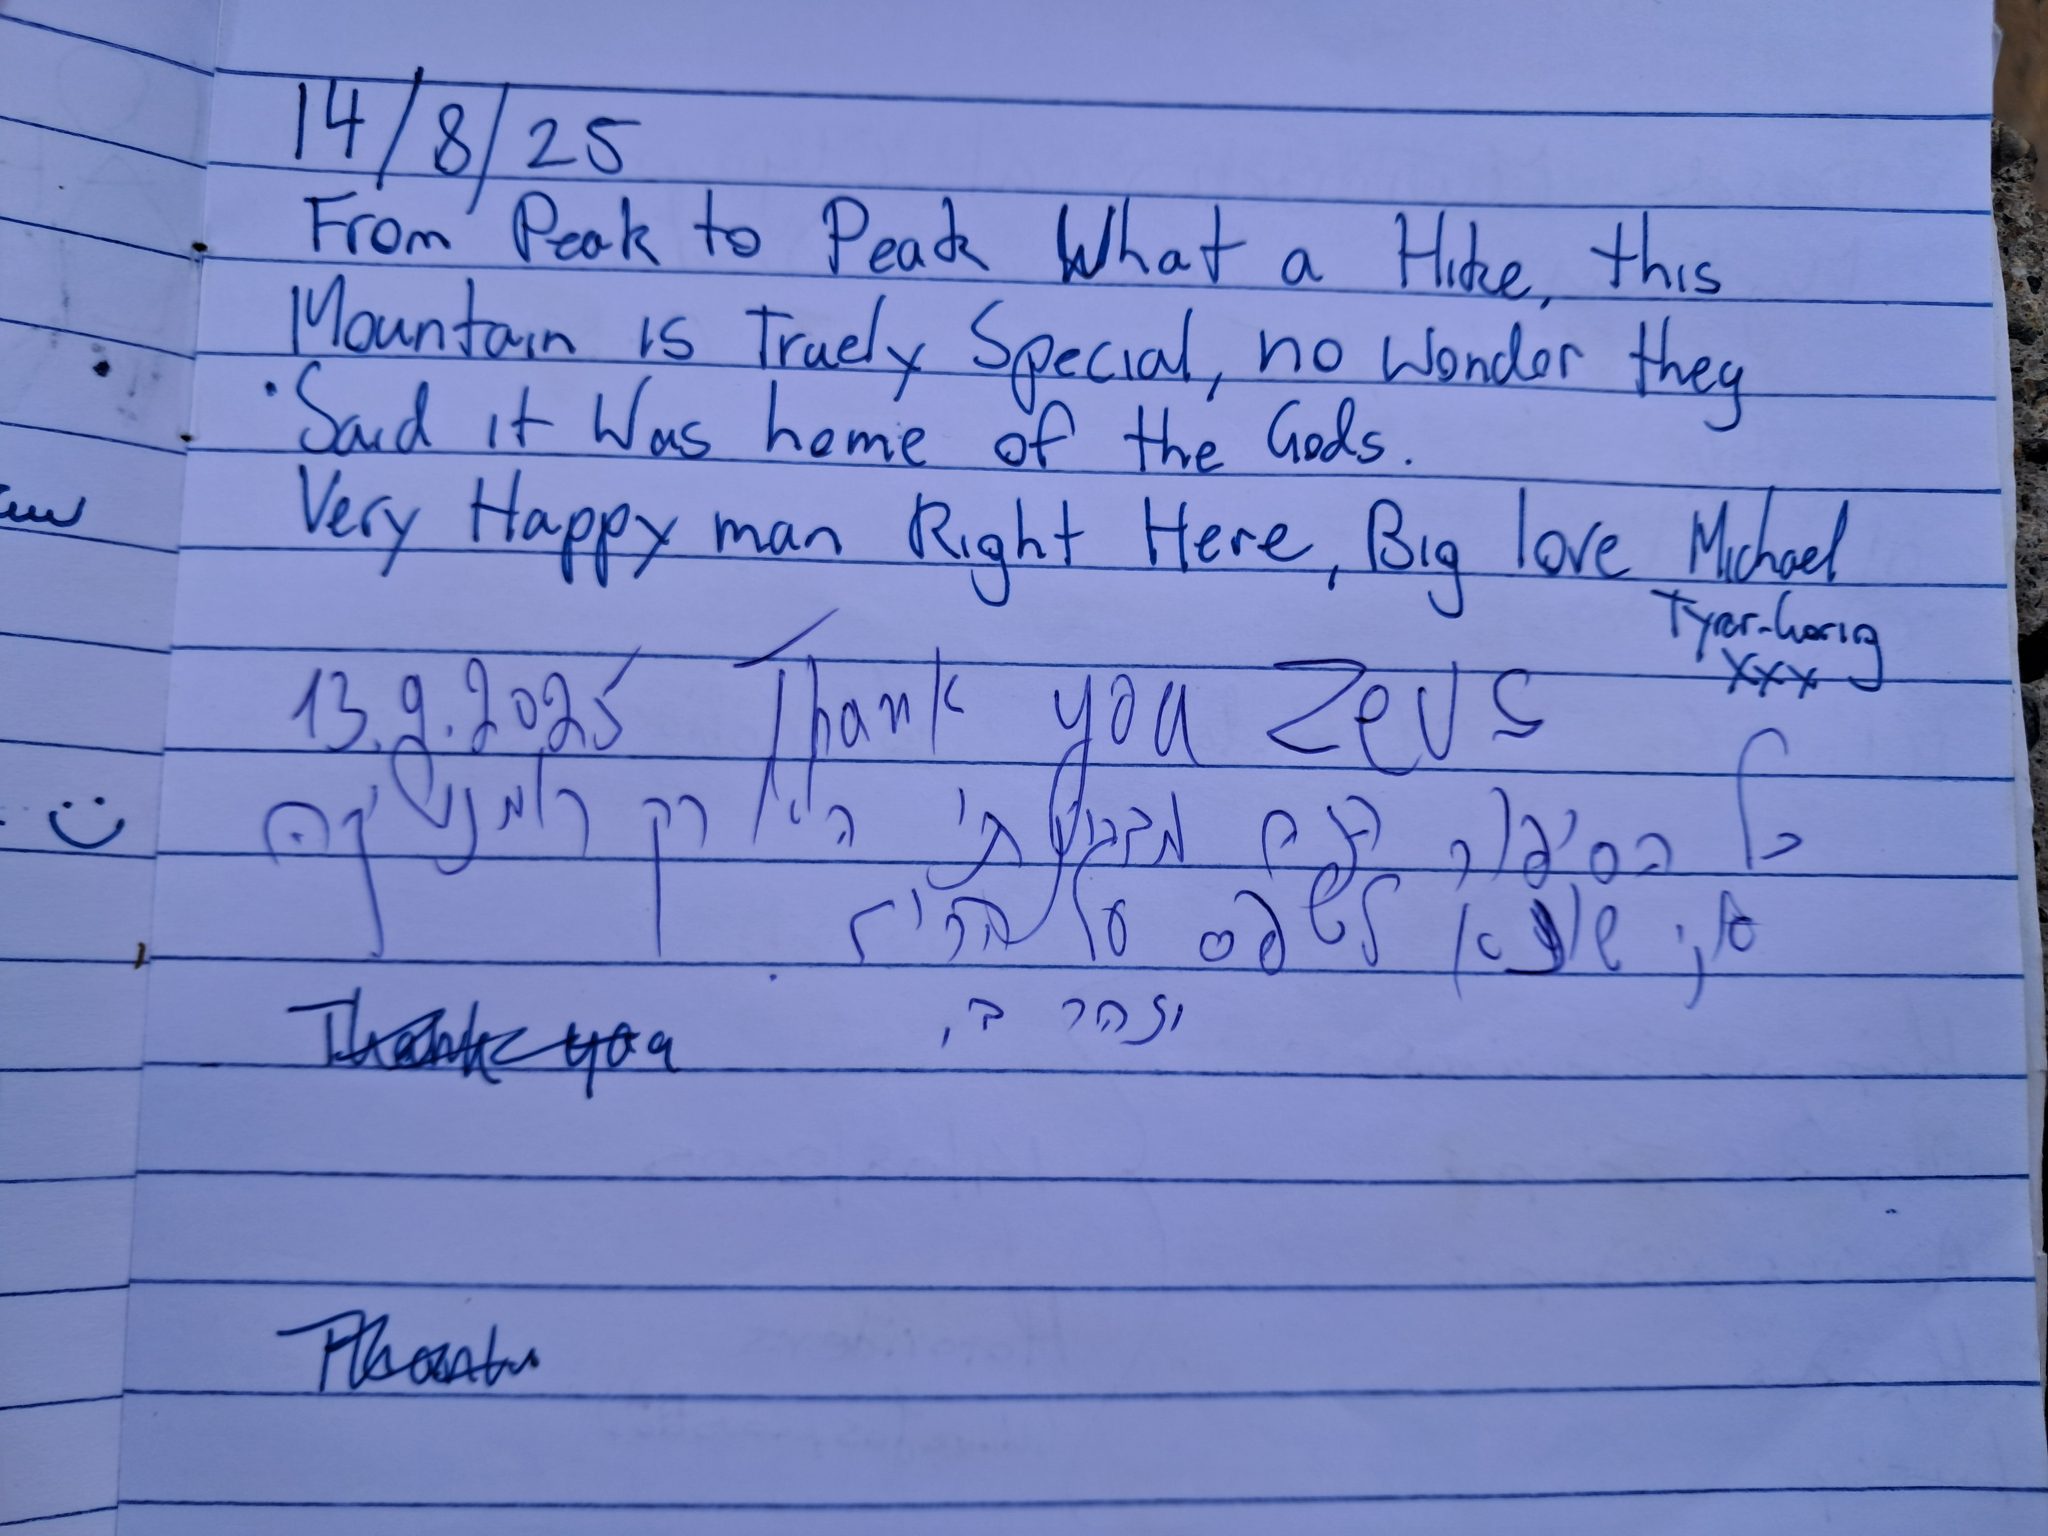 14/8/25
From Peak to Peak What a Hike, this
Mountain is Truely Special, no wonder they
Said it Was home of the Gods.
Very Happy man Right Here, Big love Michael
xxx
13.9.2025 Thank you Zeus
כל הסיפור הזה מבחינתי היה רק רומנטיקה
לטפס על ההר
זהר ב.
Thank you